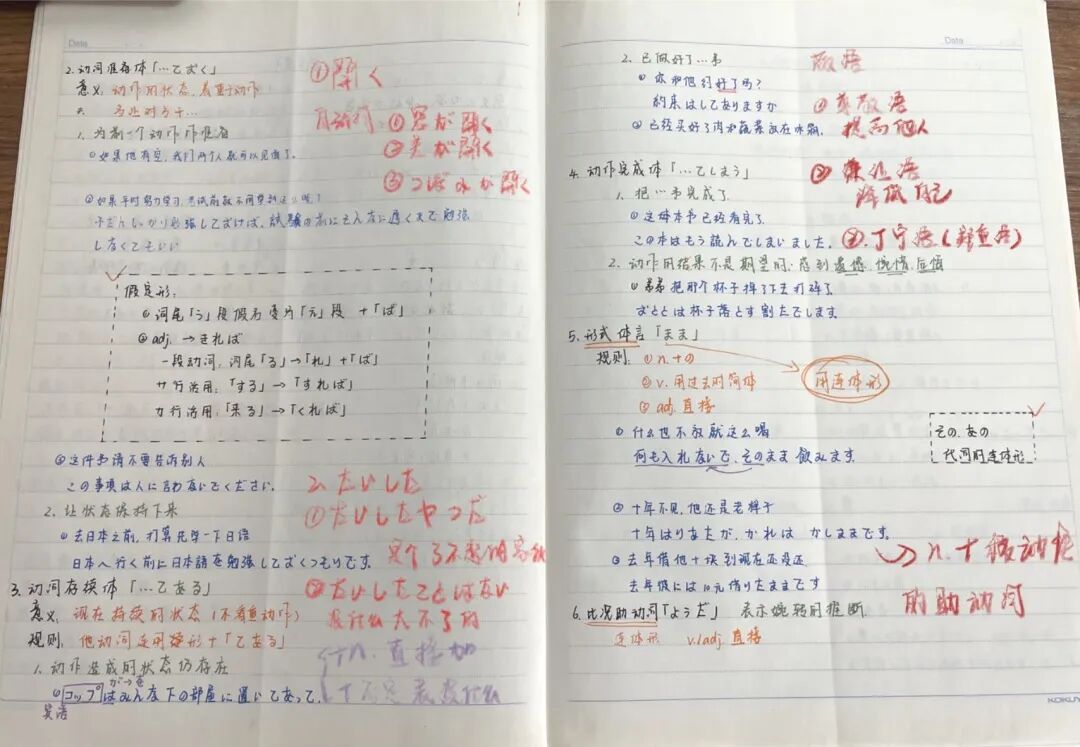 Date
2. 动词准备体「…ておく」
意义: 动作的状态,着重动作
1. 为某一个动作作准备
① 如果他有空,我们两个人就可以见面了。
② 如果平时努力学习,考试前就不用
ふだんしっかり勉強しておけば、試験の前にそんなに遅くまで勉強
しなくてもいい
假定形:
① 词尾「う」段假名变为「え」段 +「ば」
② adj. →ければ
一段动词: 词尾「る」→「れ」+「ば」
サ行活用:「する」→「すれば」
カ行活用:「来る」→「くれば」
③ 这件事请不要告诉别人
この事項は人に言わないでください。
2. 让状态维持下来
① 去日本之前,打算先学一下日语
日本へ行く前に日本語を勉強しておくつもりです。
3. 动词存续体「…てある」
意义: 现在持续的状态(不着重动作)
规则: 他动词连用形+「てある」
1. 动作造成的状态仍存在
が→を
① コップはみんな下の部屋に置いてあって.
英语
① 開く
自动词 ① 窓が開く
② 光が開く
③ つぼみが開く
2. たいした
① たいしたやつだ
② たいしたことはない
没什么大不了的
+n. 直接加
+不定 表没什么
Date
2. 已做好了…事
① 你和他约好了吗?
約束はしてありますか
② 已经买好了肉和蔬菜放在冰箱.
4. 动作完成体「…てしまう」
1. 把…事完成了
① 这本书已经看完了
この本はもう読んでしまいました。
2. 动作用结果不是期望时, 感到遗憾, 惋惜, 后悔
① 弟弟把那个杯子掉了下去打碎了
おととは杯子落とす割たでします。
5. 形式体言「まま」
规则: ① n.+の
② v. 用过去时简体
③ adj. 直接
用连体形
① 什么也不放就这么喝
何も入れないで、そのまま飲みます。
その、あの
代词的连体形
② 十年不见,他还是老样子
十年はりまたが、かれは かしままです。
③ 去年借他十块到现在还没还
去年級には10元借りたままです
6. 比况助动词「ようだ」 表示婉转的推断
连体形 v./adj. 直接
敬语
① 尊敬语
提高他人
②
降低自己
③. 丁宁语(郑重语)
的助动词
KOKUYO